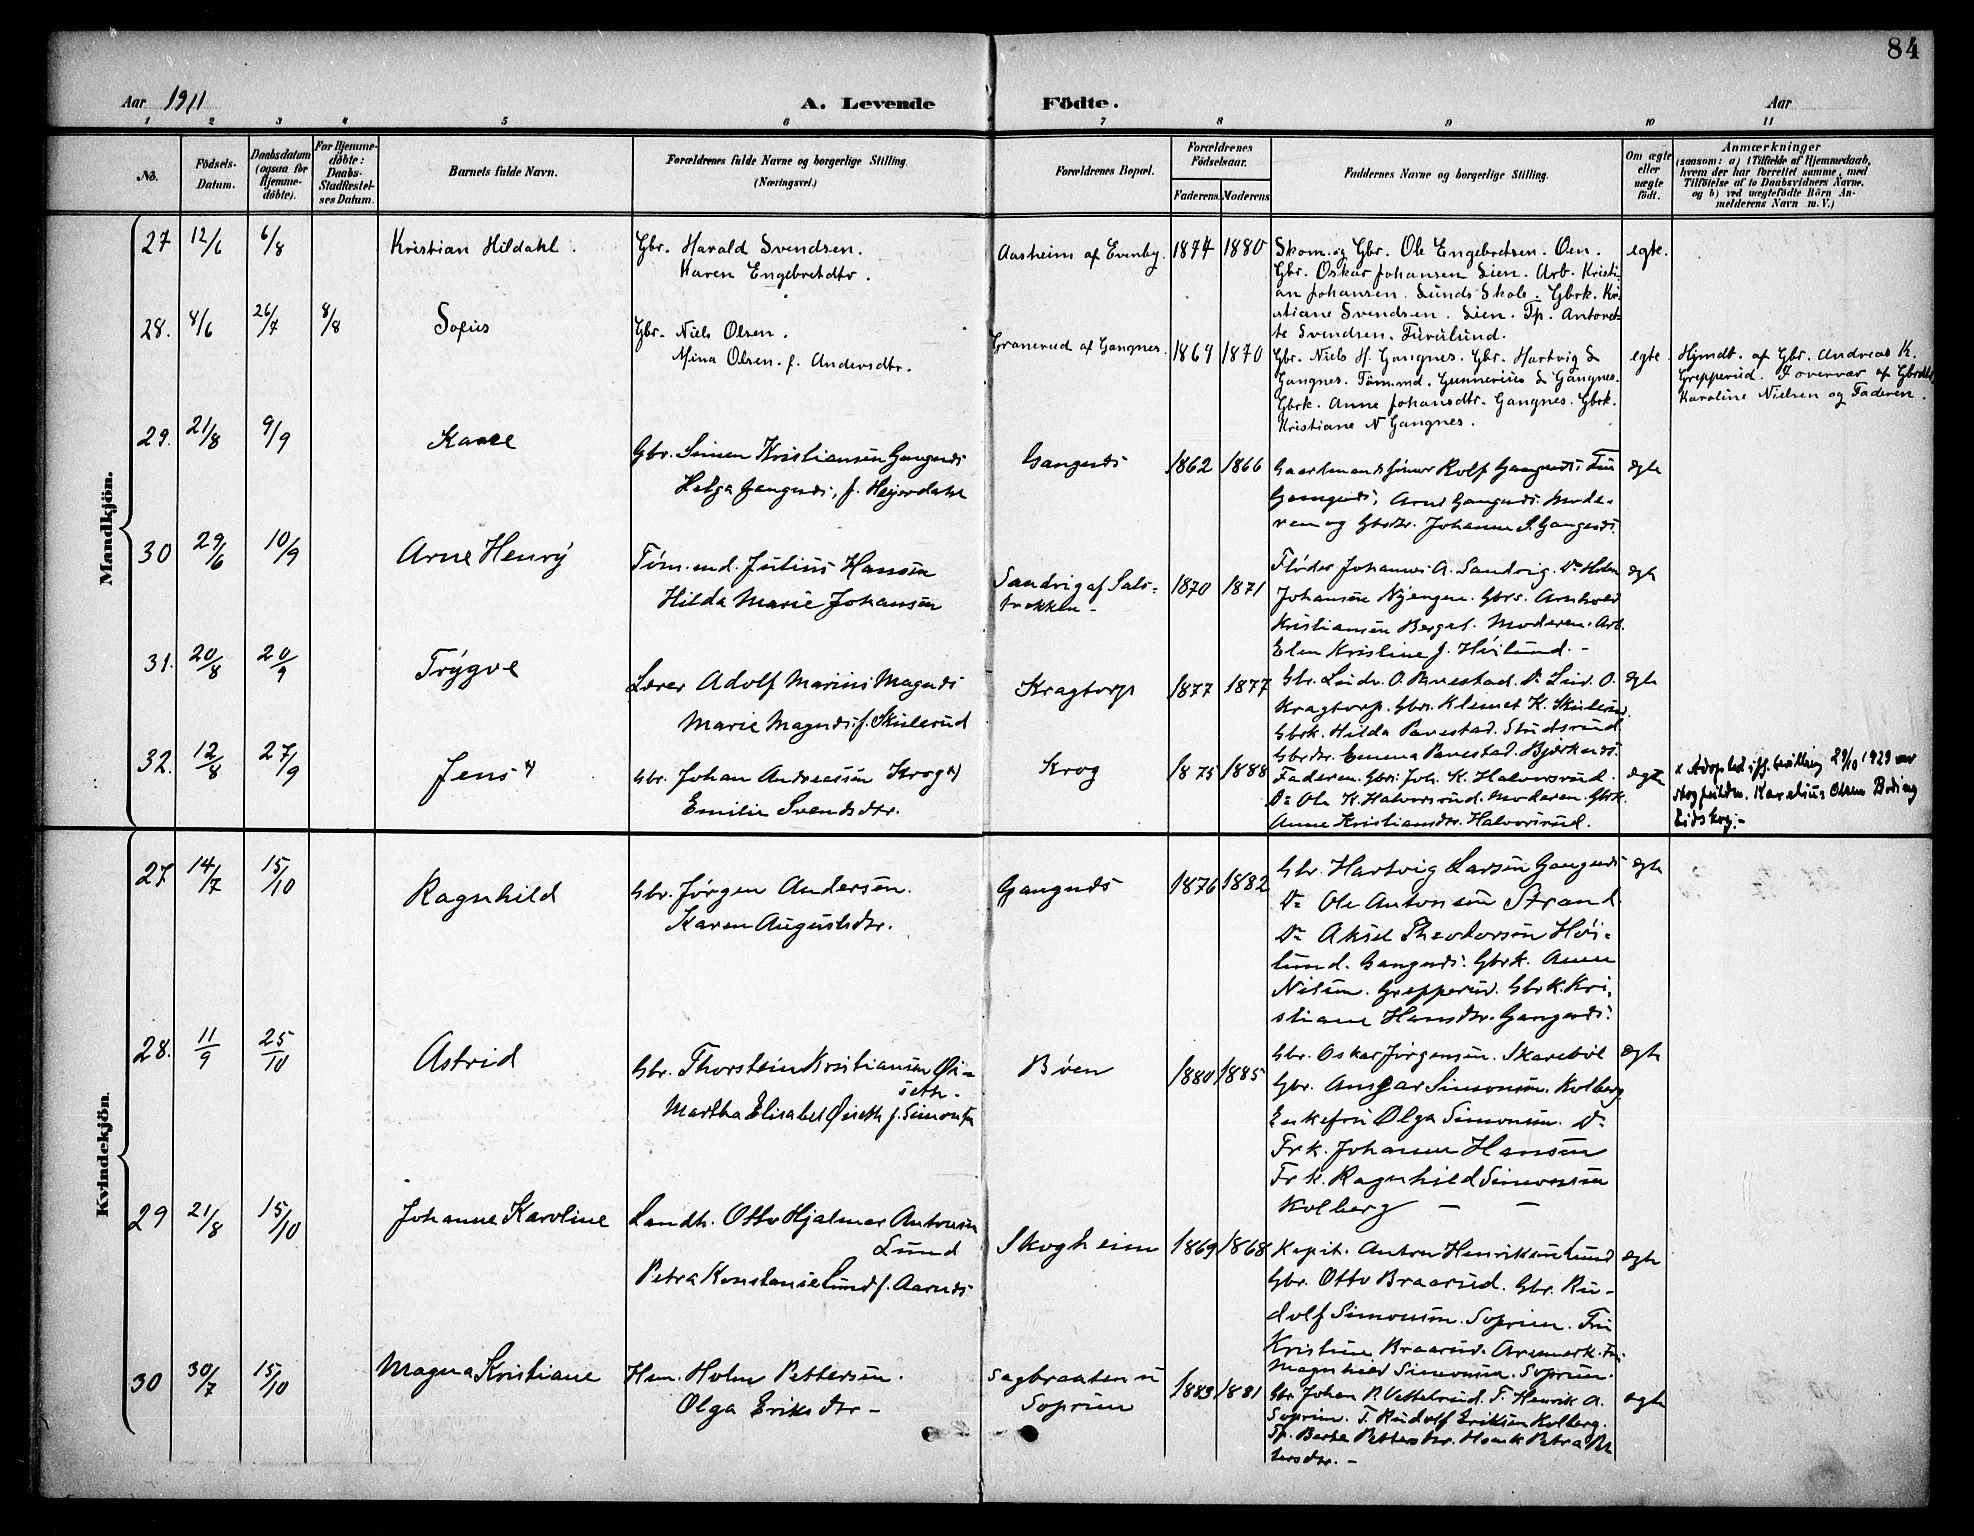 84
Aar 1911
A. Levende Födte.
Aar
1 2 3 4 5 6 7 8 9 10 11
No.
Födsels-
Datum.
Daabsdatum
(ogsaa for
Hjemme-
døbte).
For Hjemme-
døbte:
Daabs-
Stadfæstel-
ses Datum.
Barnets fulde Navn.
Forældrenes fulde Navne og borgerlige Stilling.
(Næringsvei.)
Forældrenes Bopæl.
Forældrenes
Födselsaar.
Faderens Moderens
Faddernes Navne og borgerlige Stilling.
Om ægte
eller
uægte
født.
Anmærkninger
(saasom: a) i Tilfælde af Hjemmedaab,
hvem der har forrettet samme, med
Tilföielse af to Daabsvidners Navne,
og b) ved uægtefödte Börn An-
melderens Navn m. V.)
Mandkjön.
27 12/6 6/8
Kristian Hildahl.
Gbr. Harald Svendsen.
Karen Engebretdtr.
Aasheim af Evenby. 1874 1880
Skom. og Gbr. Ole Engebretsen. Oen.
Gbr. Oskar Johansen Lien. Arb. Kristi-
an Johansen. Lunds Skole. Gbrk. Kri-
stiane Svendsen. Lien. Tp. Antonet-
te Svendsen. Furulund.
egte.
28. 8/6 26/7 8/8
Sofus
Gbr. Niels Olsen.
Mina Olsen. f. Andersdtr.
Granerud af Gangnes. 1864 1870
Gbr. Niels H. Gangnes. Gbr. Hartvig L
Gangnes. Tömmd. Gunnerius L Gangnes.
Gbrk. Anne Johansdtr. Gangnes. Gbrk.
Kristiane N Gangnes.
egte.
Hjmdt. af Gbr. Andreas K.
Grepperud. I overvær af Gbrdtr
Karoline Nielsen og Faderen.
29. 21/8 9/9
Kaare
Gbr. Simen Kristiansen Gangnæs
Helga Gangnæs, f. Heyerdahl
Gangnæs 1862 1866
Gaardmandssønner Rolf Gangnæs, Finn
Gangnæs, Arne Gangnæs. Mode-
ren og Gbrdtr. Johanne S. Gangnæs.
ægte
30 29/6 10/9
Arne Henry
Tøm.md. Julius Hansen
Hilda Marie Johansen
Sandvig af Sals-
brekken - 1870 1871
Fløder Johannes A. Sandvig. Do Holm
Johansen Nyengen. Gbrs. Arnhold
Kristiansen Berget. Moderen. Arb.
Elen Kristine J. Høilund. -
ægte
31. 20/8 20/9
Trygve
Lærer Adolf Marius Magnæs
Marie Magnæs f. Skulerud
Kragtorp 1877 1877
Gbr. Ludv. O. Buestad. Do Ludv. O.
Kragtorp. Gbr. Klemet K. Skulerud.
Gbrk. Hilda Buestad. Studsrud
Gbrdtr. Emma Buestad. Bjørknæs.
ægte
32. 12/8 27/9
Jens x)
Gbr. Johan Andreassen Krog x)
Emilie Svendsdtr.
Krog 1875 1888
Faderen. Gbr. Joh. K. Halvorsrud.
Do Ole K. Halvorsrud. Moderen. Gbrk.
Anne Kristiansdtr. Halvorsrud.
ægte
x Adopted iflg. bevilling 29/10 1929 av
skogfuldm. Karelius Olsen Boding
Eidskog. -
Kvindekjön.
27 14/7 15/10
Ragnhild
Gbr. Jørgen Andersen.
Karen Augustsdtr.
Gangnæs 1876 1882
Gbr. Hartvig Larsen Gangnæs
Do Ole Antonsen Strand
Do Aksel Theodorsen Høi-
lund. Gangnæs. Gbrk. Anne
Nilsen. Grepperud. Gbrk. Kri-
stiane Hansdtr. Gangnæs.
ægte
28. 11/9 25/10
Astrid
Gbr. Thorstein Kristiansen Øi-
seth.
Martha Elisabet Øiseth f. Simonsen
Bøen 1880 1885
Gbr. Oskar Jørgensen. Skarebøl
Gbr. Ansgar Simonsen. Kolberg
Enkefru Olga Simonsen. Do
Frk. Johanne Hansen
Frk. Ragnhild Simonsen
Kolberg - -
ægte
29 21/8 15/10
Johanne Karoline
Landh. Otto Hjalmar Antonsen
Lund
Petra Konstanse Lund f. Aarnæs
Skogheim 1869 1868
Kapit. Anton Henriksen Lund
Gbr. Otto Braarud. Gbr. Ru-
dolf Simonsen. Soprim. Fru
Kristine Braarud. Aremark. Fru
Magnhild Simonsen. Soprim.
ægte
30 30/7 15/10
Magna Kristiane
Hsm. Holm Pettersen.
Olga Eriksdtr -
Sagbraaten u
Soprim 1883 1881
Gbr. Johan P. Vestelrud. T. Henrik A.
Soprim. T. Rudolf Eriksen Kolberg.
Tp. Berte Pettersdtr. Hsmk Petra Pet
tersdtr. -
ægte